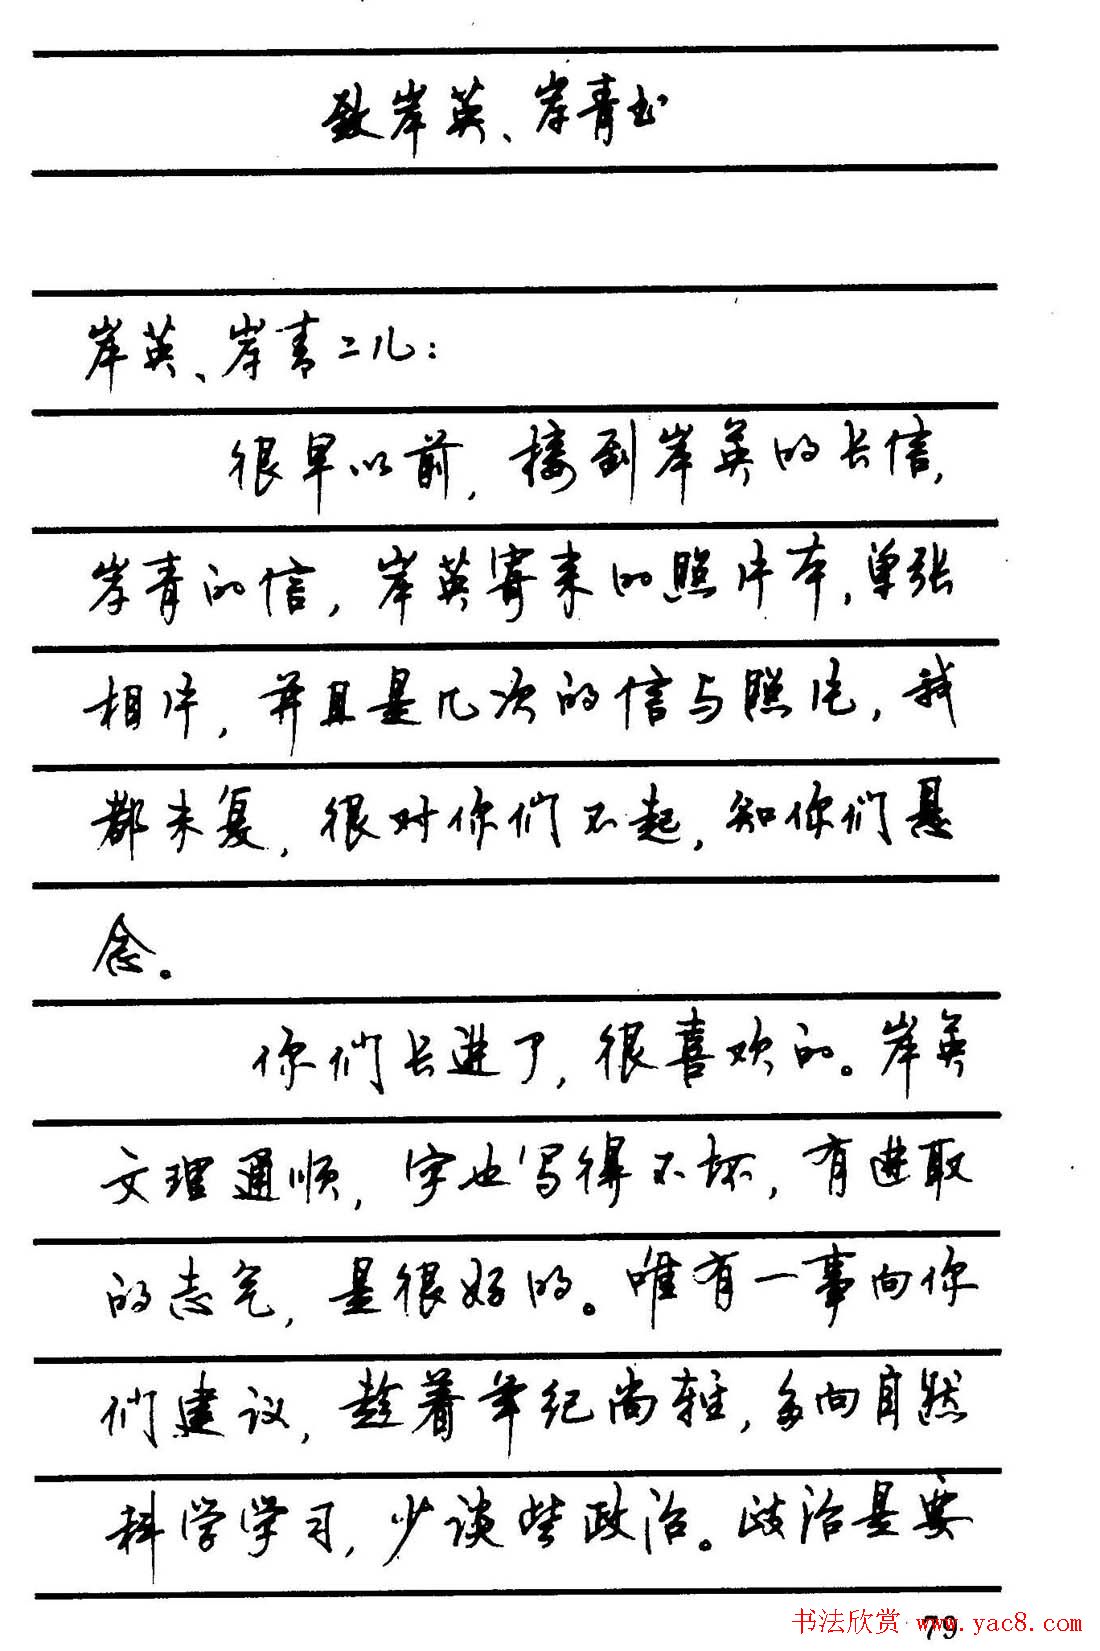 致岸英、岸青书
岸英、岸青二儿：
很早以前，接到岸英的长信，
岸青的信，岸英寄来的照片本，单张
相片，并且是几次的信与照片，我
都未复，很对你们不起，知你们悬
念。
你们长进了，很喜欢的。岸英
文理通顺，字也写得不坏，有进取
的志气，是很好的。唯有一事向你
们建议，趁着年纪尚轻，多向自然
科学学习，少谈些政治。政治是要
书法欣赏 www.yac8.com
79